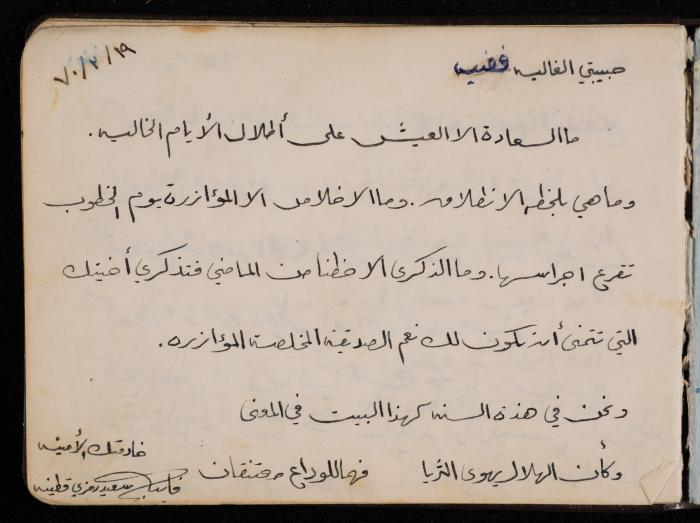 ٧٠/٣/١٩
حبيبتي الغاليه
ما السعادة الا العيش على أطلال الأيام الخاليه.
وما هي بلحظه الانطلاق. وما الاخلاص الا المؤازرة يوم الخطوب
تقرع اجراسها. وما الذكرى الا من الماضي فتذكري أخيتك
التي تتمنى أن تكون لك نعم الصديقة المخلصة المؤازره.
ونحن في هذه السنه كهذا البيت في المعنى
وكأن الهلال يهوى الثريا فهما للوداع معتنقان
خادمتك الأمينه
سعيد رمزي قطينه